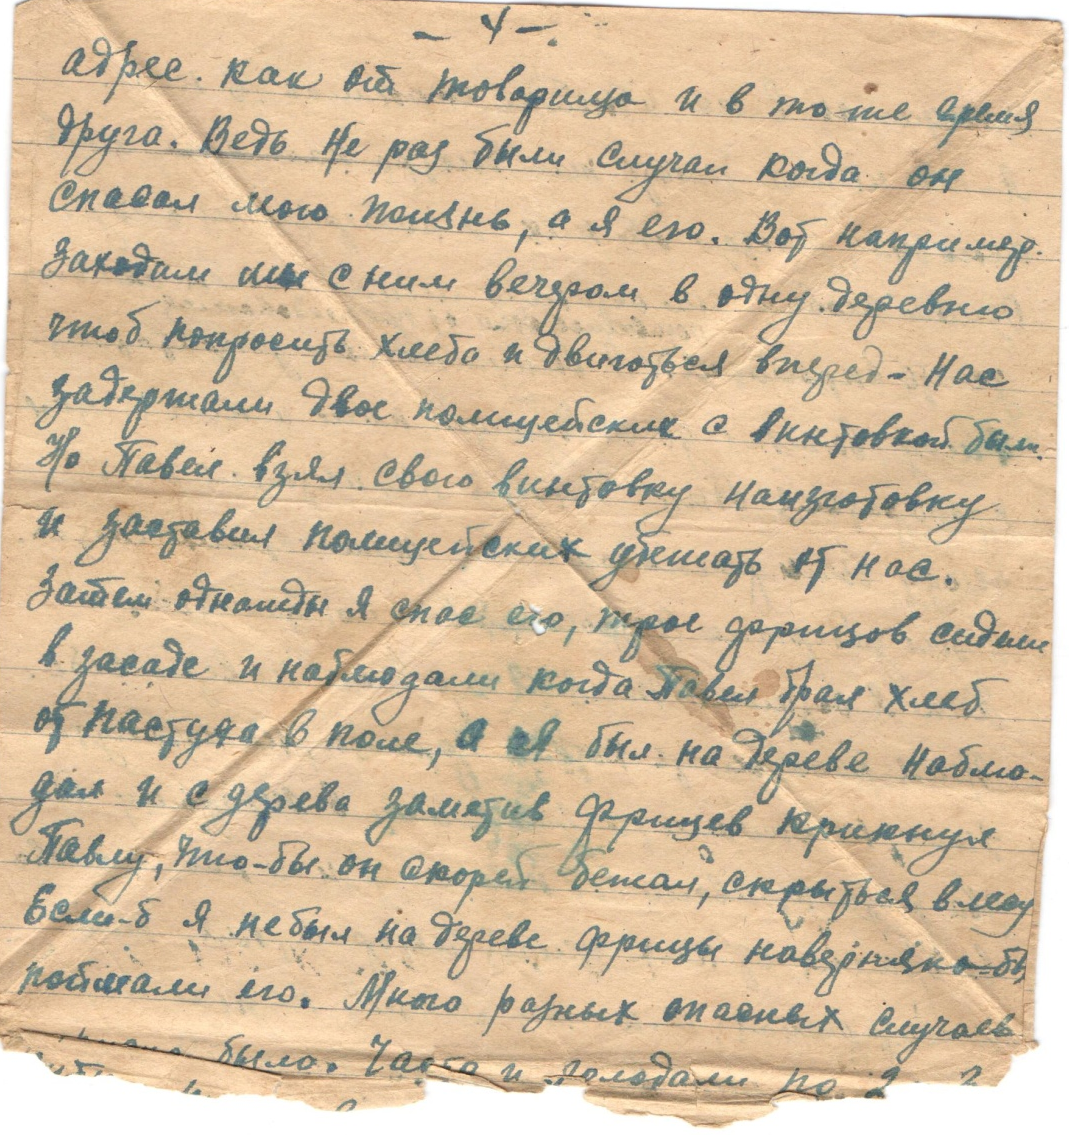 - 4 -.
адрес. как от товарища и в то-же время
друга. Ведь не раз были случаи когда он
спасал мою жизнь, а я его. Вот например.
Заходим мы с ним вечером в одну деревню
чтоб попросить хлеба и двигаться вперед - Нас
задержали двое полицейских с винтовкой были.
Но Павел взял свою винтовку наизготовку
и заставил полицейских убежать от нас.
Затем однажды я спас его, трое фрицов сидели
в засаде и наблюдали когда Павел брал хлеб
от пастуха в поле, а я был на дереве наблю-
дал и с дерева заметив фрицев крикнул
Павлу, что-бы он скорей бежал, скрыться в лесу
Если-б я не был на дереве фрицы наверняка-бы
поймали его. Много разных опасных случаев
было. Часто и голодали по 2